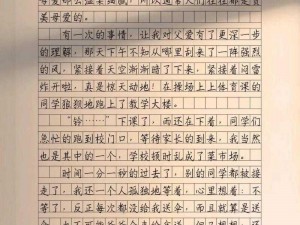 母爱那么温柔细腻，所以通常人们往往在赞
美母爱的。
有一次的事情，让我对父爱有了更深一步
的理解，那天下午不知从哪里刮来了一阵强烈
的风，紧接着天空渐渐暗了下来，紧接着闷雷
炸开啦，真是惊天动地！在操场上上体育课的
同学狼狈地跑上了教学大楼。
“铃……”下课了，而还在下着，同学们
急忙的跑到校门口，等待家长的到来，我当然
也是其中的一个，学校顿时乱成了菜市场。
时间一分一秒的过去了，别的同学都被接
走了，我还一个人孤独地等着，心里想着：不
等了，反正每次都没给我送伞，而且就算是送